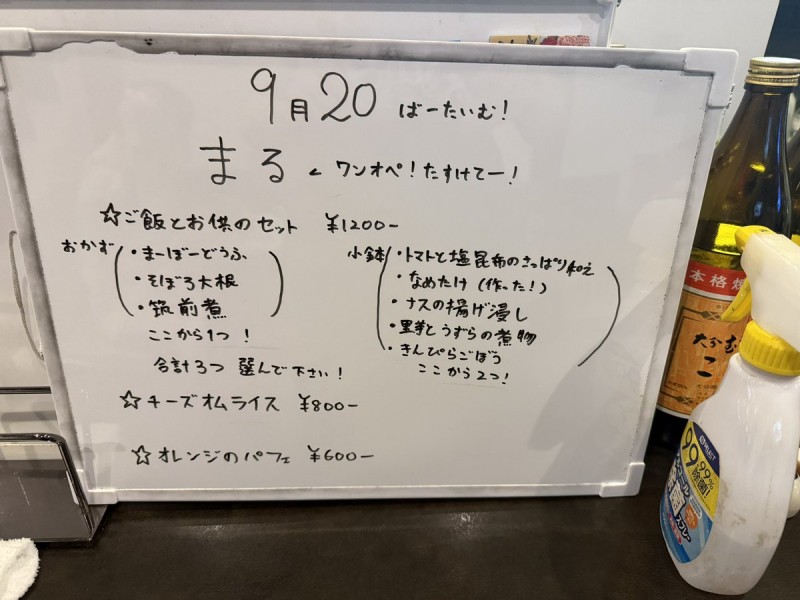 9月20 ばーたいむ!
まる ← ワンオペ!たすけてー!
☆ご飯とお供のセット ¥1200-
おかず
・まーぼーどうふ
・そぼろ大根
・筑前煮
ここから1つ!
小鉢
・トマトと塩昆布のさっぱり和え
・なめたけ(作った!)
・ナスの揚げ浸し
・里芋とうずらの煮物
・きんぴらごぼう
ここから2つ!
合計3つ 選んで下さい!
☆チーズオムライス ¥800-
☆オレンジのパフェ ¥600-
本格焼
大分む
二
99.99%
除菌!